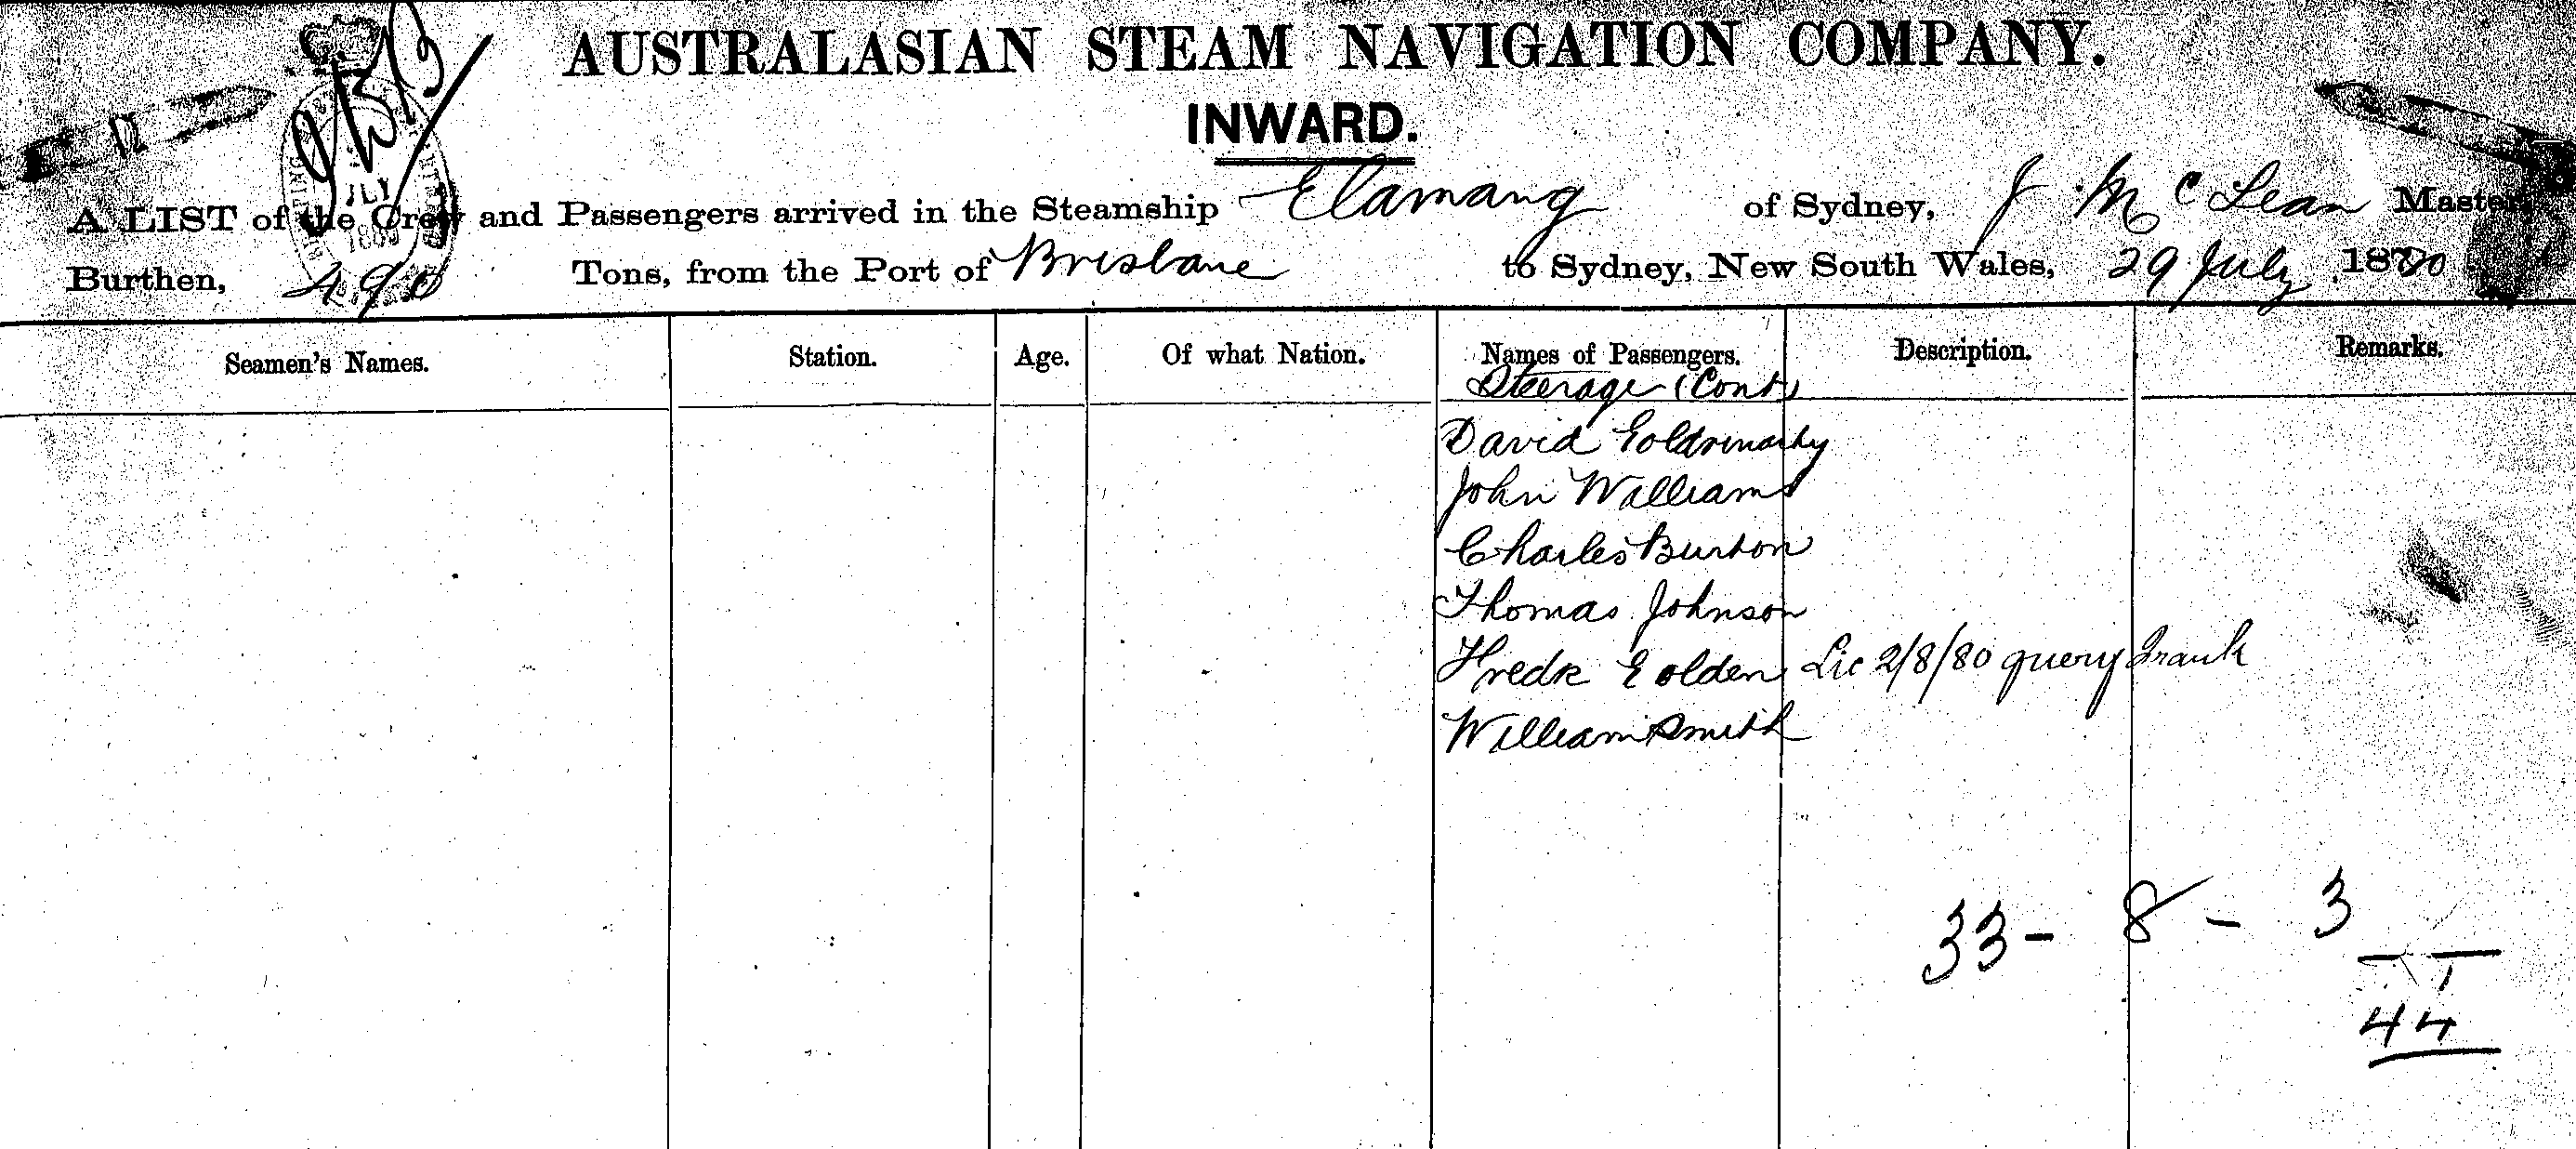 AUSTRALASIAN STEAM NAVIGATION COMPANY.
INWARD.
A LIST of the Crew and Passengers arrived in the Steamship Elamang of Sydney, J McLean Master,
Burthen, 490 Tons, from the Port of Brisbane to Sydney, New South Wales, 29 July 1880
JLY
1880
Seamen's Names. Station. Age. Of what Nation. Names of Passengers. Description. Remarks.
Steerage (Cont)
David
John Williams
Charles Burton
Thomas Johnson
Fredk Golden Lic 2/8/80 query Frank
William Smith
33 - 8 - 3
44